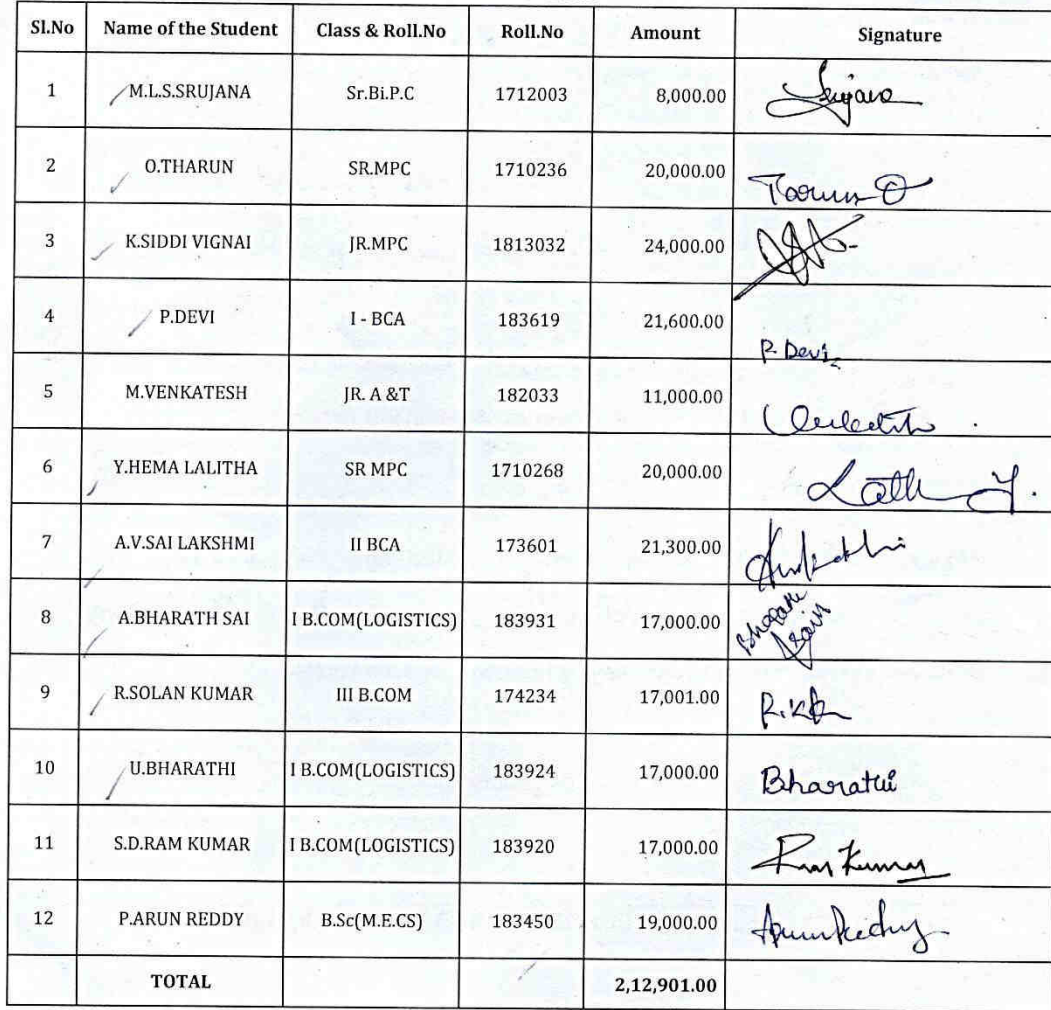 Sl.No Name of the Student Class & Roll.No Roll.No Amount Signature
1 M.L.S.SRUJANA Sr.Bi.P.C 1712003 8,000.00 Srujana
2 O.THARUN SR.MPC 1710236 20,000.00 Tarun O
3 K.SIDDI VIGNAI JR.MPC 1813032 24,000.00
4 P.DEVI I - BCA 183619 21,600.00 P. Devi
5 M.VENKATESH JR. A &T 182033 11,000.00
6 Y.HEMA LALITHA SR MPC 1710268 20,000.00
7 A.V.SAI LAKSHMI II BCA 173601 21,300.00
8 A.BHARATH SAI I B.COM(LOGISTICS) 183931 17,000.00
9 R.SOLAN KUMAR III B.COM 174234 17,001.00
10 U.BHARATHI I B.COM(LOGISTICS) 183924 17,000.00 Bharathi
11 S.D.RAM KUMAR I B.COM(LOGISTICS) 183920 17,000.00 Ram Kumar
12 P.ARUN REDDY B.Sc(M.E.CS) 183450 19,000.00 Arun Reddy
TOTAL 2,12,901.00